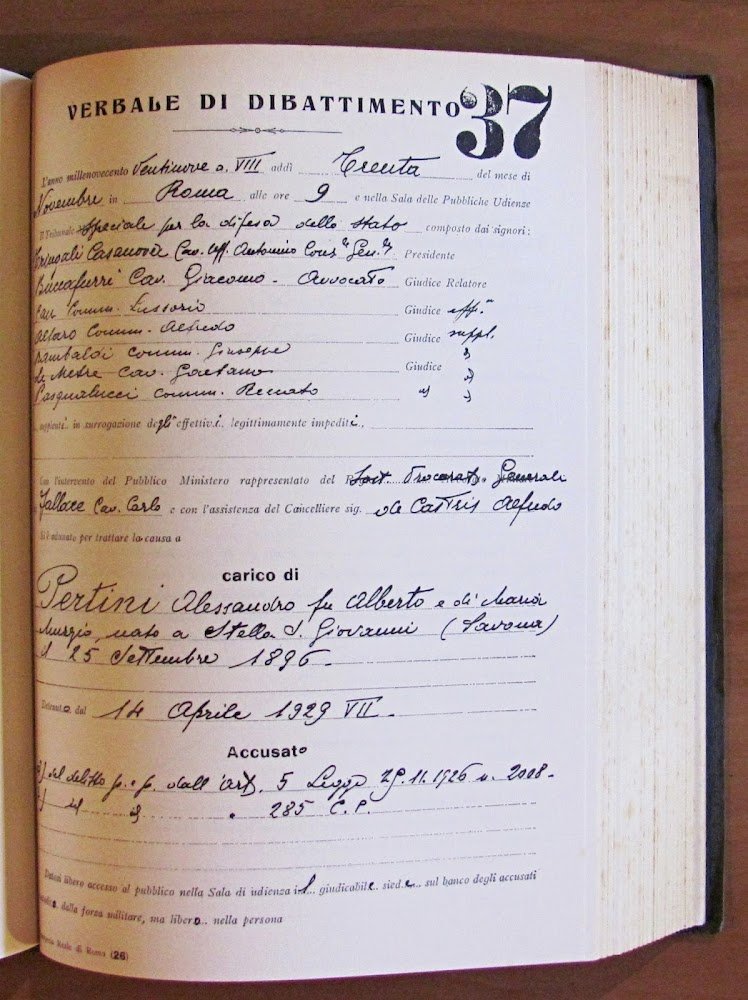 VERBALE DI DIBATTIMENTO 37
L'anno millenovecento Ventinove a. VIII addì Trenta del mese di
Novembre in Roma alle ore 9 e nella Sala delle Pubbliche Udienze
Il Tribunale Speciale per la difesa dello Stato composto dai signori:
Cristali Casanova Cav. Uff. Antonino Presidente
Buccafurri Cav. Giacomo - Avvocato Giudice Relatore
Cau Comm. Lussorio Giudice eff.
Alfaro Comm. Alfredo Giudice suppl.
Rambaldi Comm. Giuseppe "
de Mestre Cav. Gaetano Giudice "
Pasqualucci Comm. Renato " "
supplenti in surrogazione degli effettivi.. legittimamente impediti..
Con l'intervento del Pubblico Ministero rappresentato del Sost. Procurat. Generale
Fallace Cav. Carlo e con l'assistenza del Cancelliere sig. de Castris Alfredo
Si è adunato per trattare la causa a
carico di
Pertini Alessandro fu Alberto e di Maria
Murgio, nato a Stella S. Giovanni (Savona)
il 25 Settembre 1896.
Detenuto dal 14 Aprile 1929 VII.
Accusato
del delitto p. e p. dall'art. 5 Legge 25.11.1926 n. 2008.
" " 285 C. P.
libero accesso al pubblico nella Sala di udienza il... giudicabile siede... sul banco degli accusati
dalla forza militare, ma libero.. nella persona
Reale di Roma (26)